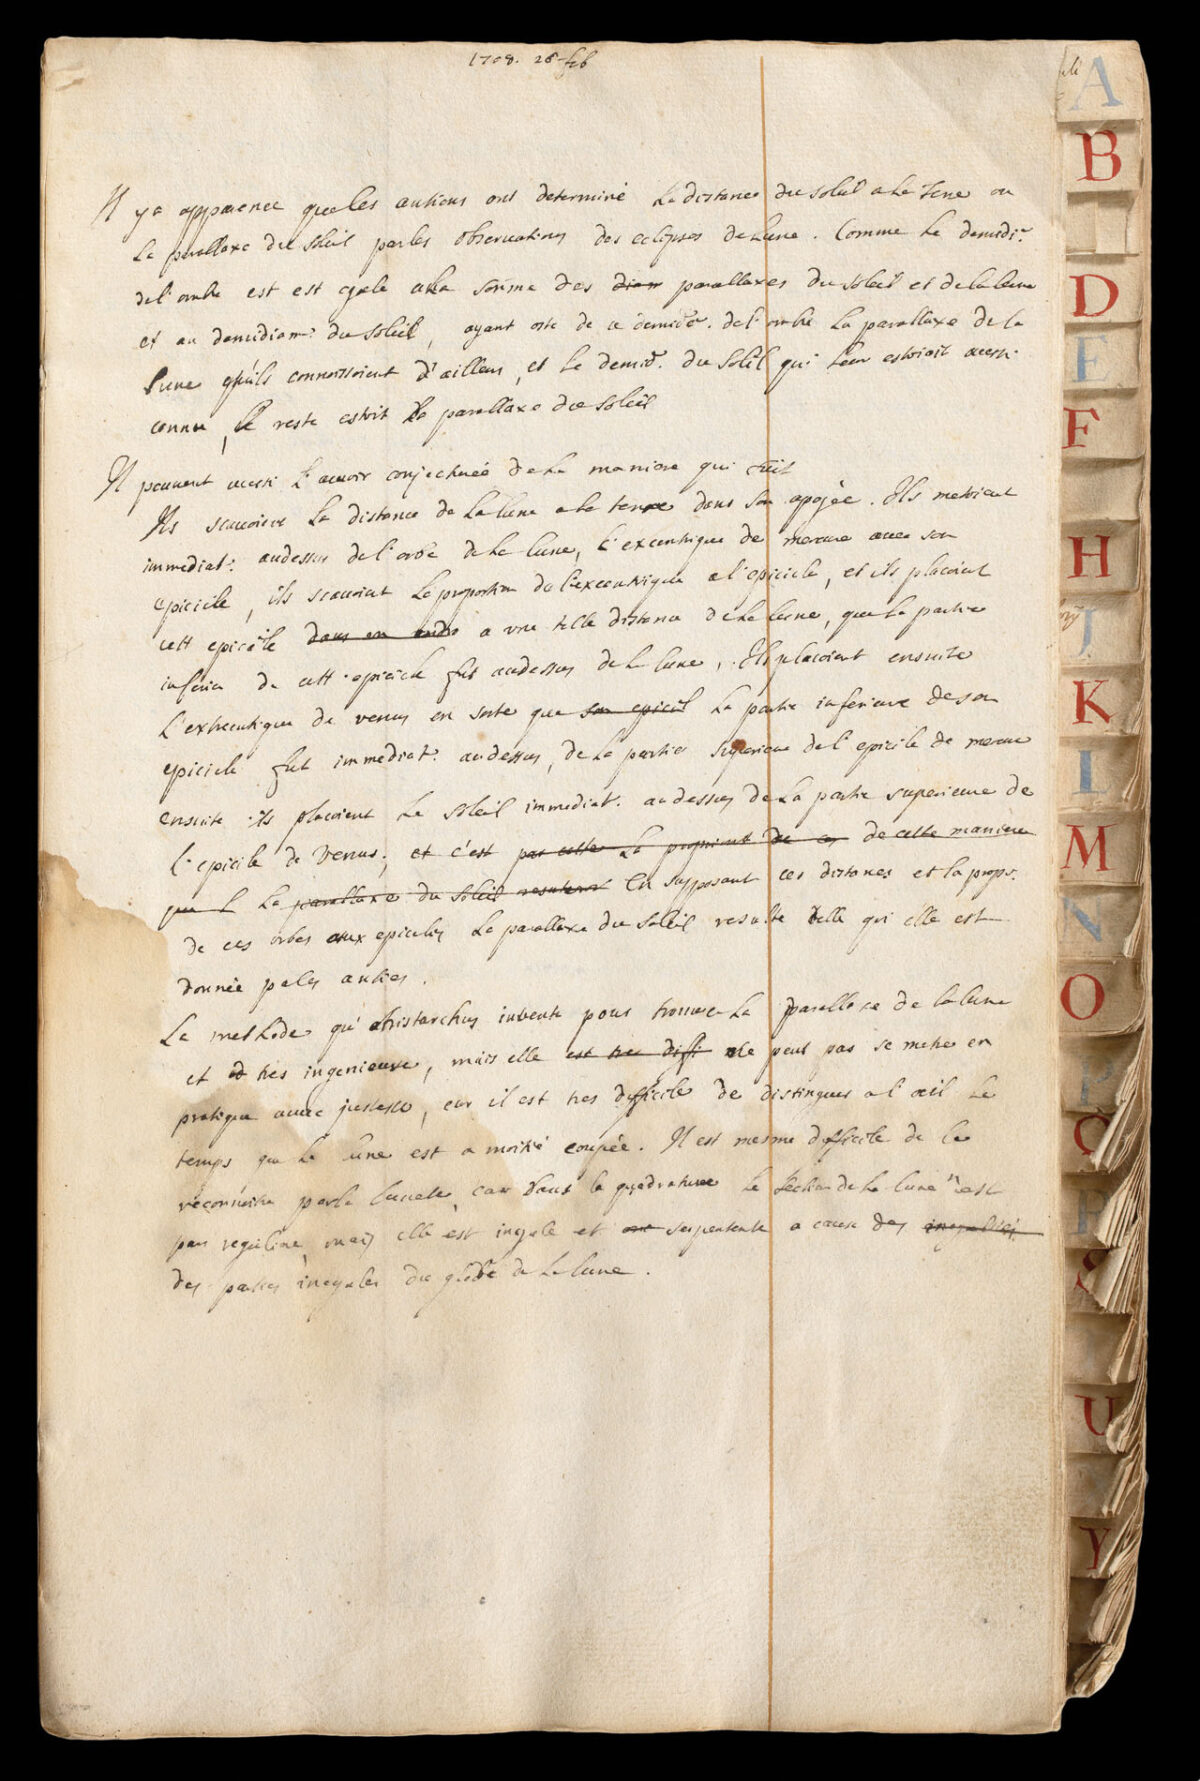 1708. 26 feb
Il y a apparence que les antiens ont determiné la distance du soleil a la terre ou
la parallaxe du soleil par les observations des eclipses de lune. Comme le demidi.r
de l'ombre est est egale a la somme des diam parallaxes du soleil et de la lune
et au demidiam: du soleil, ayant osté de ce demid.r de l'ombre la parallaxe de la
lune qu'ils connoissoient d'ailleurs, et le demid.r du soleil qui leur estoit aussi
connu, le reste estoit la parallaxe du soleil
Il peuvent aussi l'avoir conjecturée de la maniere qui suit
Ils scavoient la distance de la lune a la terre dans son apogée. Ils metoient
immediat: audessus de l'orbe de la lune, l'excentrique de mercure avec son
epicicle, ils scavoient la proportion de l'excentrique a l'epicicle, et ils placoient
cett epicicle dans en a une telle distance de la lune, que la partie
inferieur de cett epicicle fut audessus de la lune, Ils placoient ensuite
l'excentrique de venus en sorte que son epicicl la partie inferieure de son
epicicle fut immediat: audessus, de la partie superieure de l'epicicle de mercure
ensuite ils placoient le soleil immediat. audessus de la partie superieure de
l'epicicle de Venus; et c'est par cette la de ces de cette maniere
que l la parallaxe du soleil resulteroit En supposant ces distances et la propor.
de ces orbes aux epicicles la parallaxe du soleil resulte telle qu'elle est
donnée par les antiens.
La methode qu'Aristarchus invente pour trouver la parallaxe de la lune
et tres ingenieuse, mais elle est tres diffi ne peut pas se metre en
pratique avec justesse, car il est tres difficile de distinguer a l'œil le
temps que la lune est a moitié coupée. Il est mesme difficile de le
reconnoitre par la lunete, car dans la quadrature la section de la lune n'est
pas reguliere, mais elle est inegale et serpentente a cause des inegalitéz
des parties inegales du globe de la lune.
A
B
D
E
F
H
I
K
L
M
N
O
P
Q
R
S
U
Y